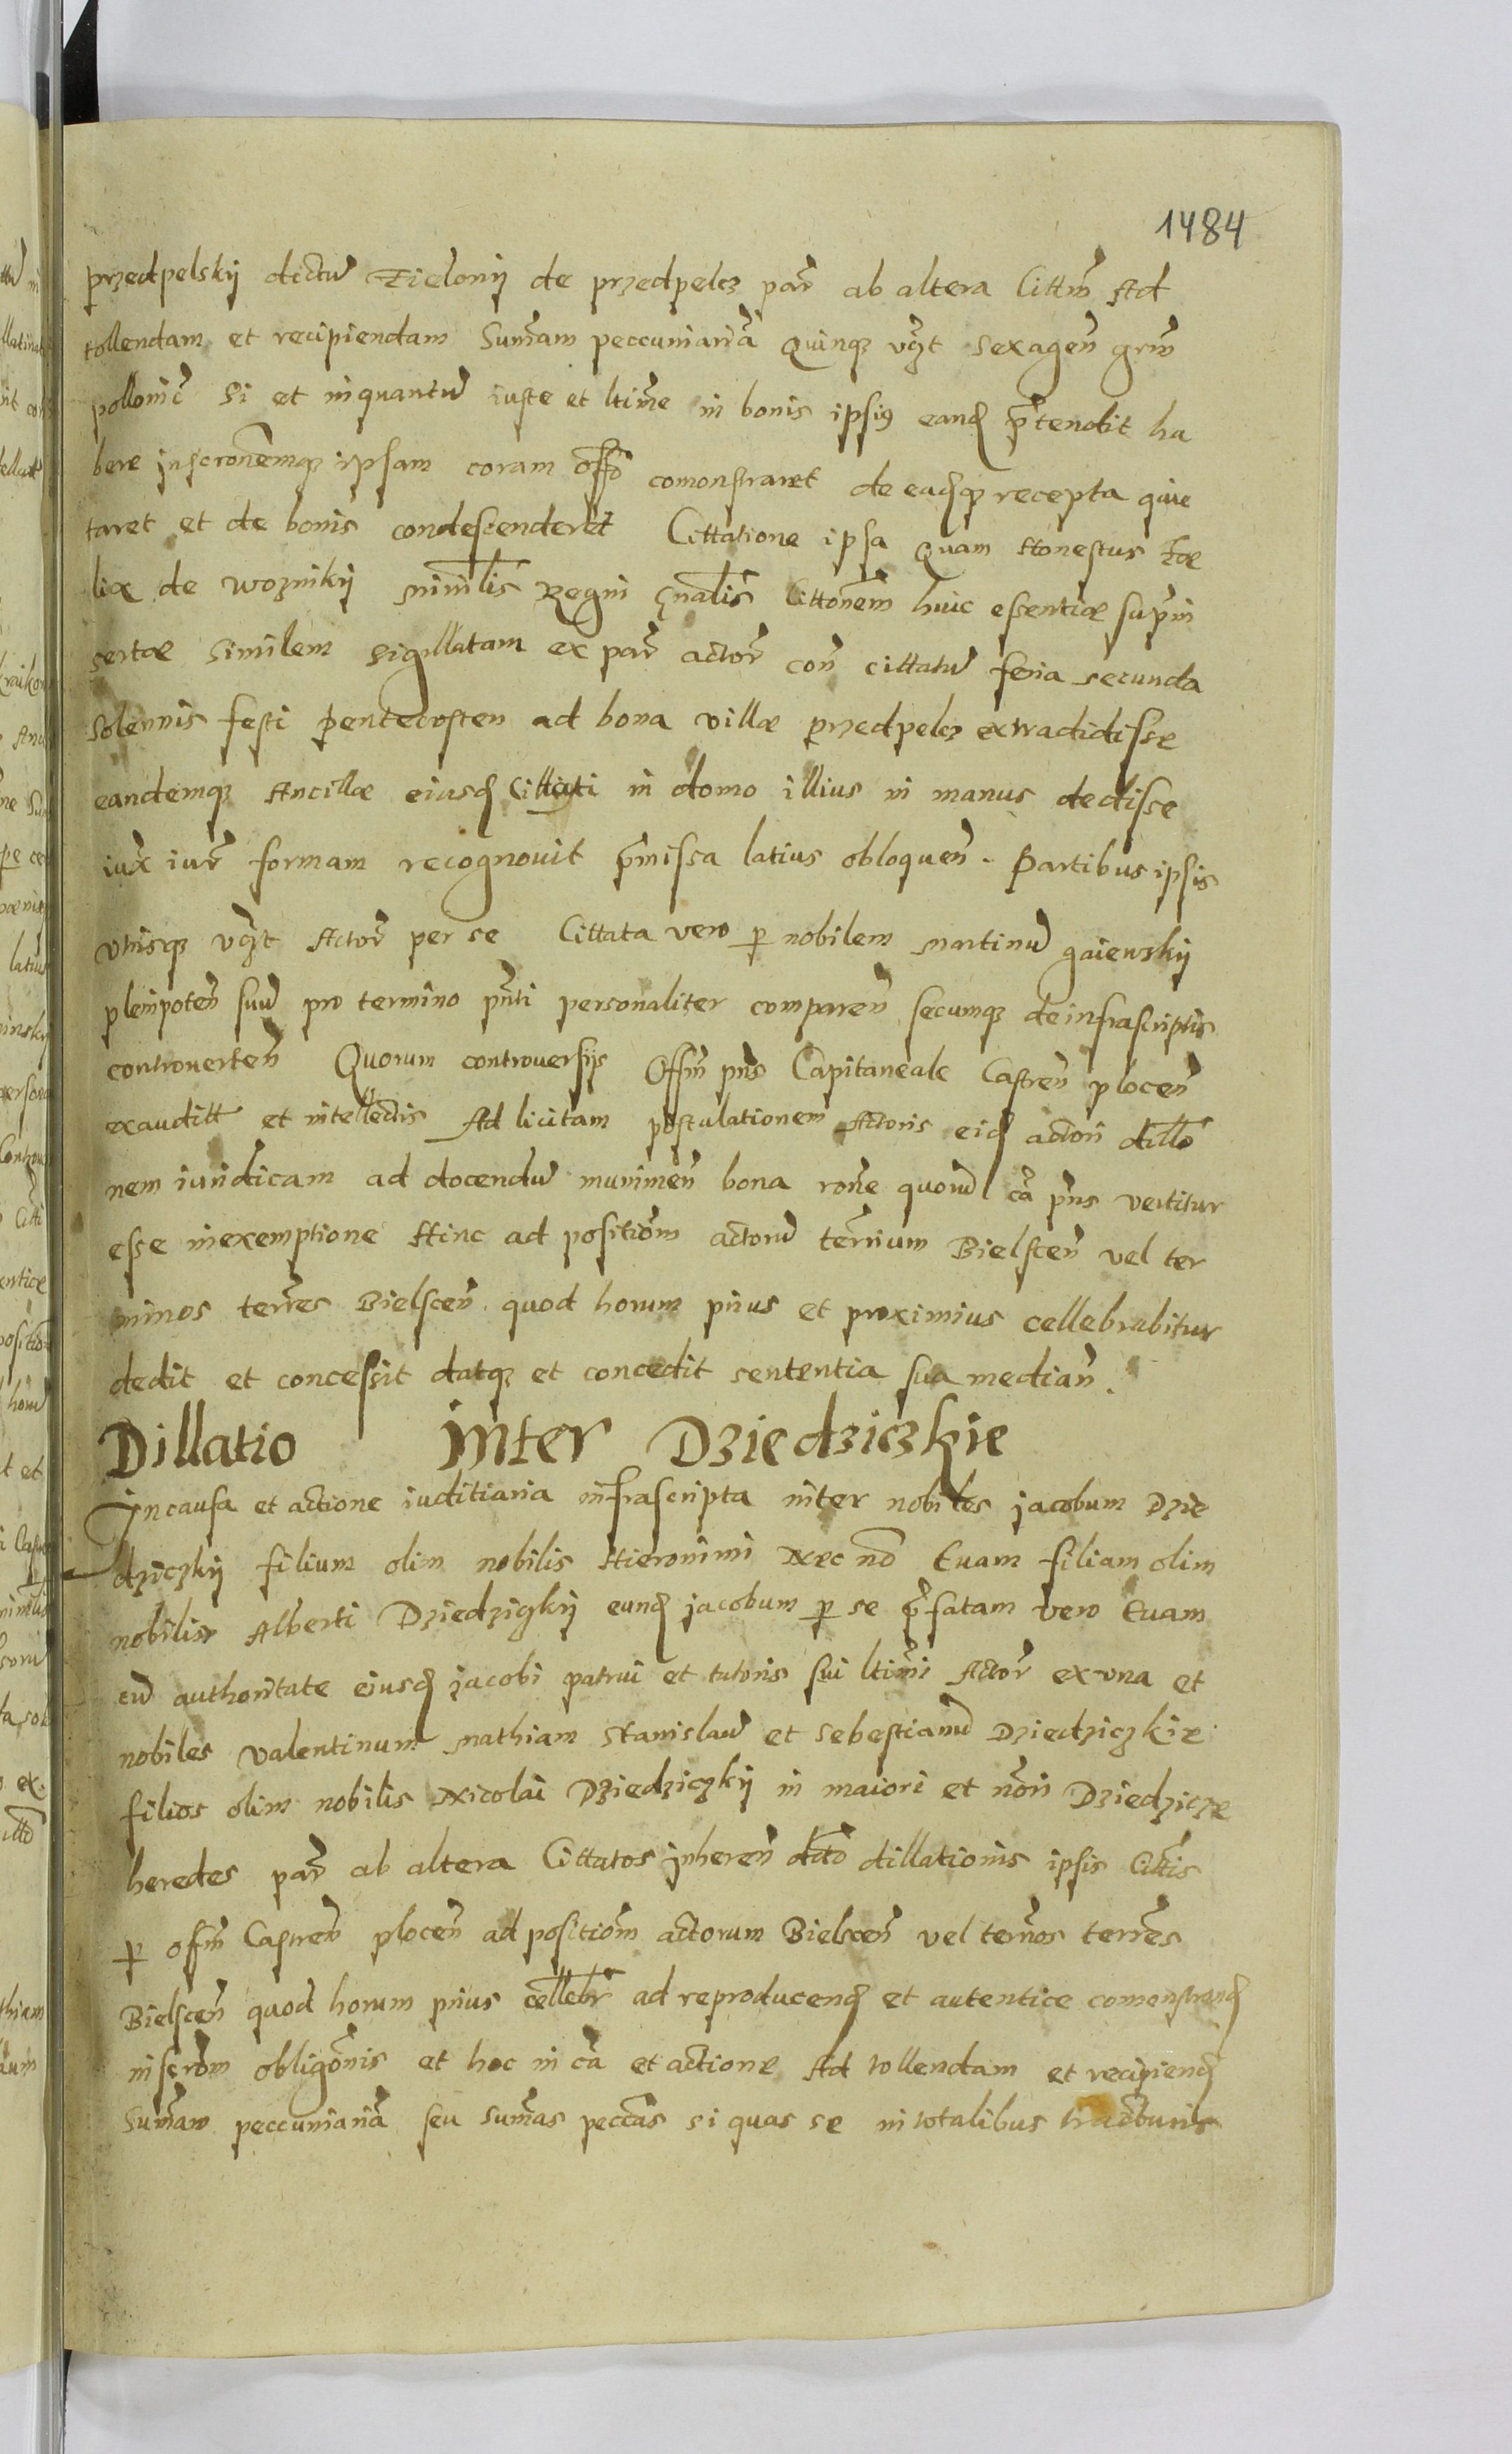 1484
przedpelskij dictū Zielonij de przedpelcz par̄ ab altera Citt̄m Ad
tollendam et recipiendam Sum̄am peccuniariā Quinqȝ vgt̄ sexagen̄ grm̄
pollonic̄ si et inquantū iuste et ltime in bonis ipsiꝰ eand p̄tendit ha
bere inscronemqȝ ipsam coram offō comonstraret de eadqȝ recepta quie
taret et de bonis condescenderet Cittatione ipsa Quam Honestus
de woznikij minrlis Regni gn̄alis Citton̄em huic essentiæ supin
sertæ similem sigillatam ex par̄ actor̄ con̄ cittatū feria secunda
solennis festi pentecosten ad bona villæ przedpelcz extradidisse
eandemqȝ Ancillæ eiusd Cittati in domo illius in manus dedisse
iux̄ iur̄ formam recognouit p̄missa latius obloquen̄. Partibus ipsis
vtrisqȝ vgt̄ Actor̄ per se Cittata vero p nobilem martinū gaiewskij
plenipoten̄ suū pro termino pn̄ti personaliter comparen̄ secumqȝ de infrascriptis
controuerten̄ Quorum controuersijs Offm̄ pn̄s Capitaneale Castren̄ plocen̄
exauditt et intellectis Ad licitam postulationem Actoris eid actori dillō
nem iuridicam ad docendū munimen̄ bona ron̄e quorū cā pn̄s vertitur
esse in exemptione Hinc ad position̄m actorū terr̄ium Bielscen̄ vel ter
minos terr̄es Bielscen̄ quod horum prius et proximius cellebrabitur
dedit et concessit datqȝ et concedit sententia sua median̄.
Dillatio inter Dziedziczkie
In causa et actione iuditiaria infrascripta inter nobiles jacobum Dzie
dziczkij filium olim nobilis Hieronimi Nec nō Euam filiam olim
nobilis Alberti Dziedziczkij eund jacobum p se p̄fatam vero Euam
cū authoritate eiusd jacobi patrui et tutoris sui ltimi Actor̄ ex una et
nobiles valentinum mathiam stanislaū et sebestianū Dziedziczkie
filios olim nobilis Nicolai Dziedziczkij in maiori et mori Dziedzicze
heredes par̄ ab altera Cittatos inheren̄ dictō dillationis ipsis Cittis
p offm̄ Castren̄ plocen̄ ad position̄m actorum Bielscen̄ vel term̄os terr̄es
Bielscen̄ quod horum prius cellebr̄ ad reproducend et autentice comonstrand
inscrōm obligōnis et hoc in cā et actione Ad tollendam et recipiend
Sum̄am peccuniariā seu sum̄as pecc̄as si quas se in totalibus